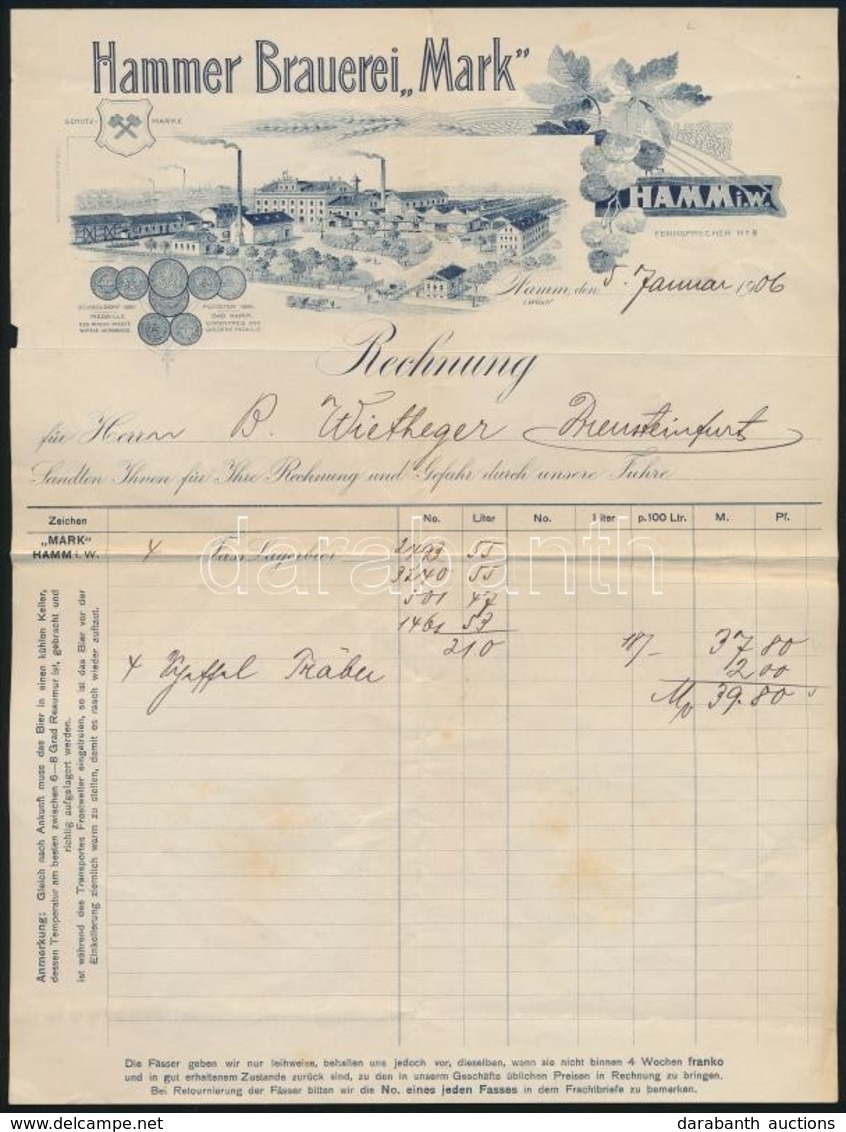 Hammer Brauerei „Mark“
SCHUTZ- MARKE
HAMM i.W.
FERNSPRECHER Nº 8
Hamm, den 5. Januar 1906
i. Westf.
DÜSSELDORF MÜNSTER
MEDAILLE BAD HAMM
Rechnung
für Herrn B. Wietheger Drensteinfurt
Sandten Ihnen für Ihre Rechnung und Gefahr durch unsere Fuhre
Zeichen No. Liter No. Liter p.100 Ltr. M. Pf.
„MARK“
HAMM i. W.
4 Fass Lagerbier 2493 55
3240 55
501 47
1461 53
210 18/- 37.80
4 Scheffel Träber 2.00
M 39.80
Anmerkung: Gleich nach Ankunft muss das Bier in einen kühlen Keller,
dessen Temperatur am besten zwischen 6—8 Grad Reaumur ist, gebracht und
richtig aufgelagert werden.
ist während des Transportes Frostwetter eingetreten, so ist das Bier vor der
Einkellerung ziemlich warm zu stellen, damit es rasch wieder auftaut.
Die Fässer geben wir nur leihweise, behalten uns jedoch vor, dieselben, wenn sie nicht binnen 4 Wochen franko
und in gut erhaltenem Zustande zurück sind, zu den in unserm Geschäfte üblichen Preisen in Rechnung zu bringen.
Bei Retournierung der Fässer bitten wir die No. eines jeden Fasses in dem Frachtbriefe zu bemerken.
darabanth
darabanth auctions